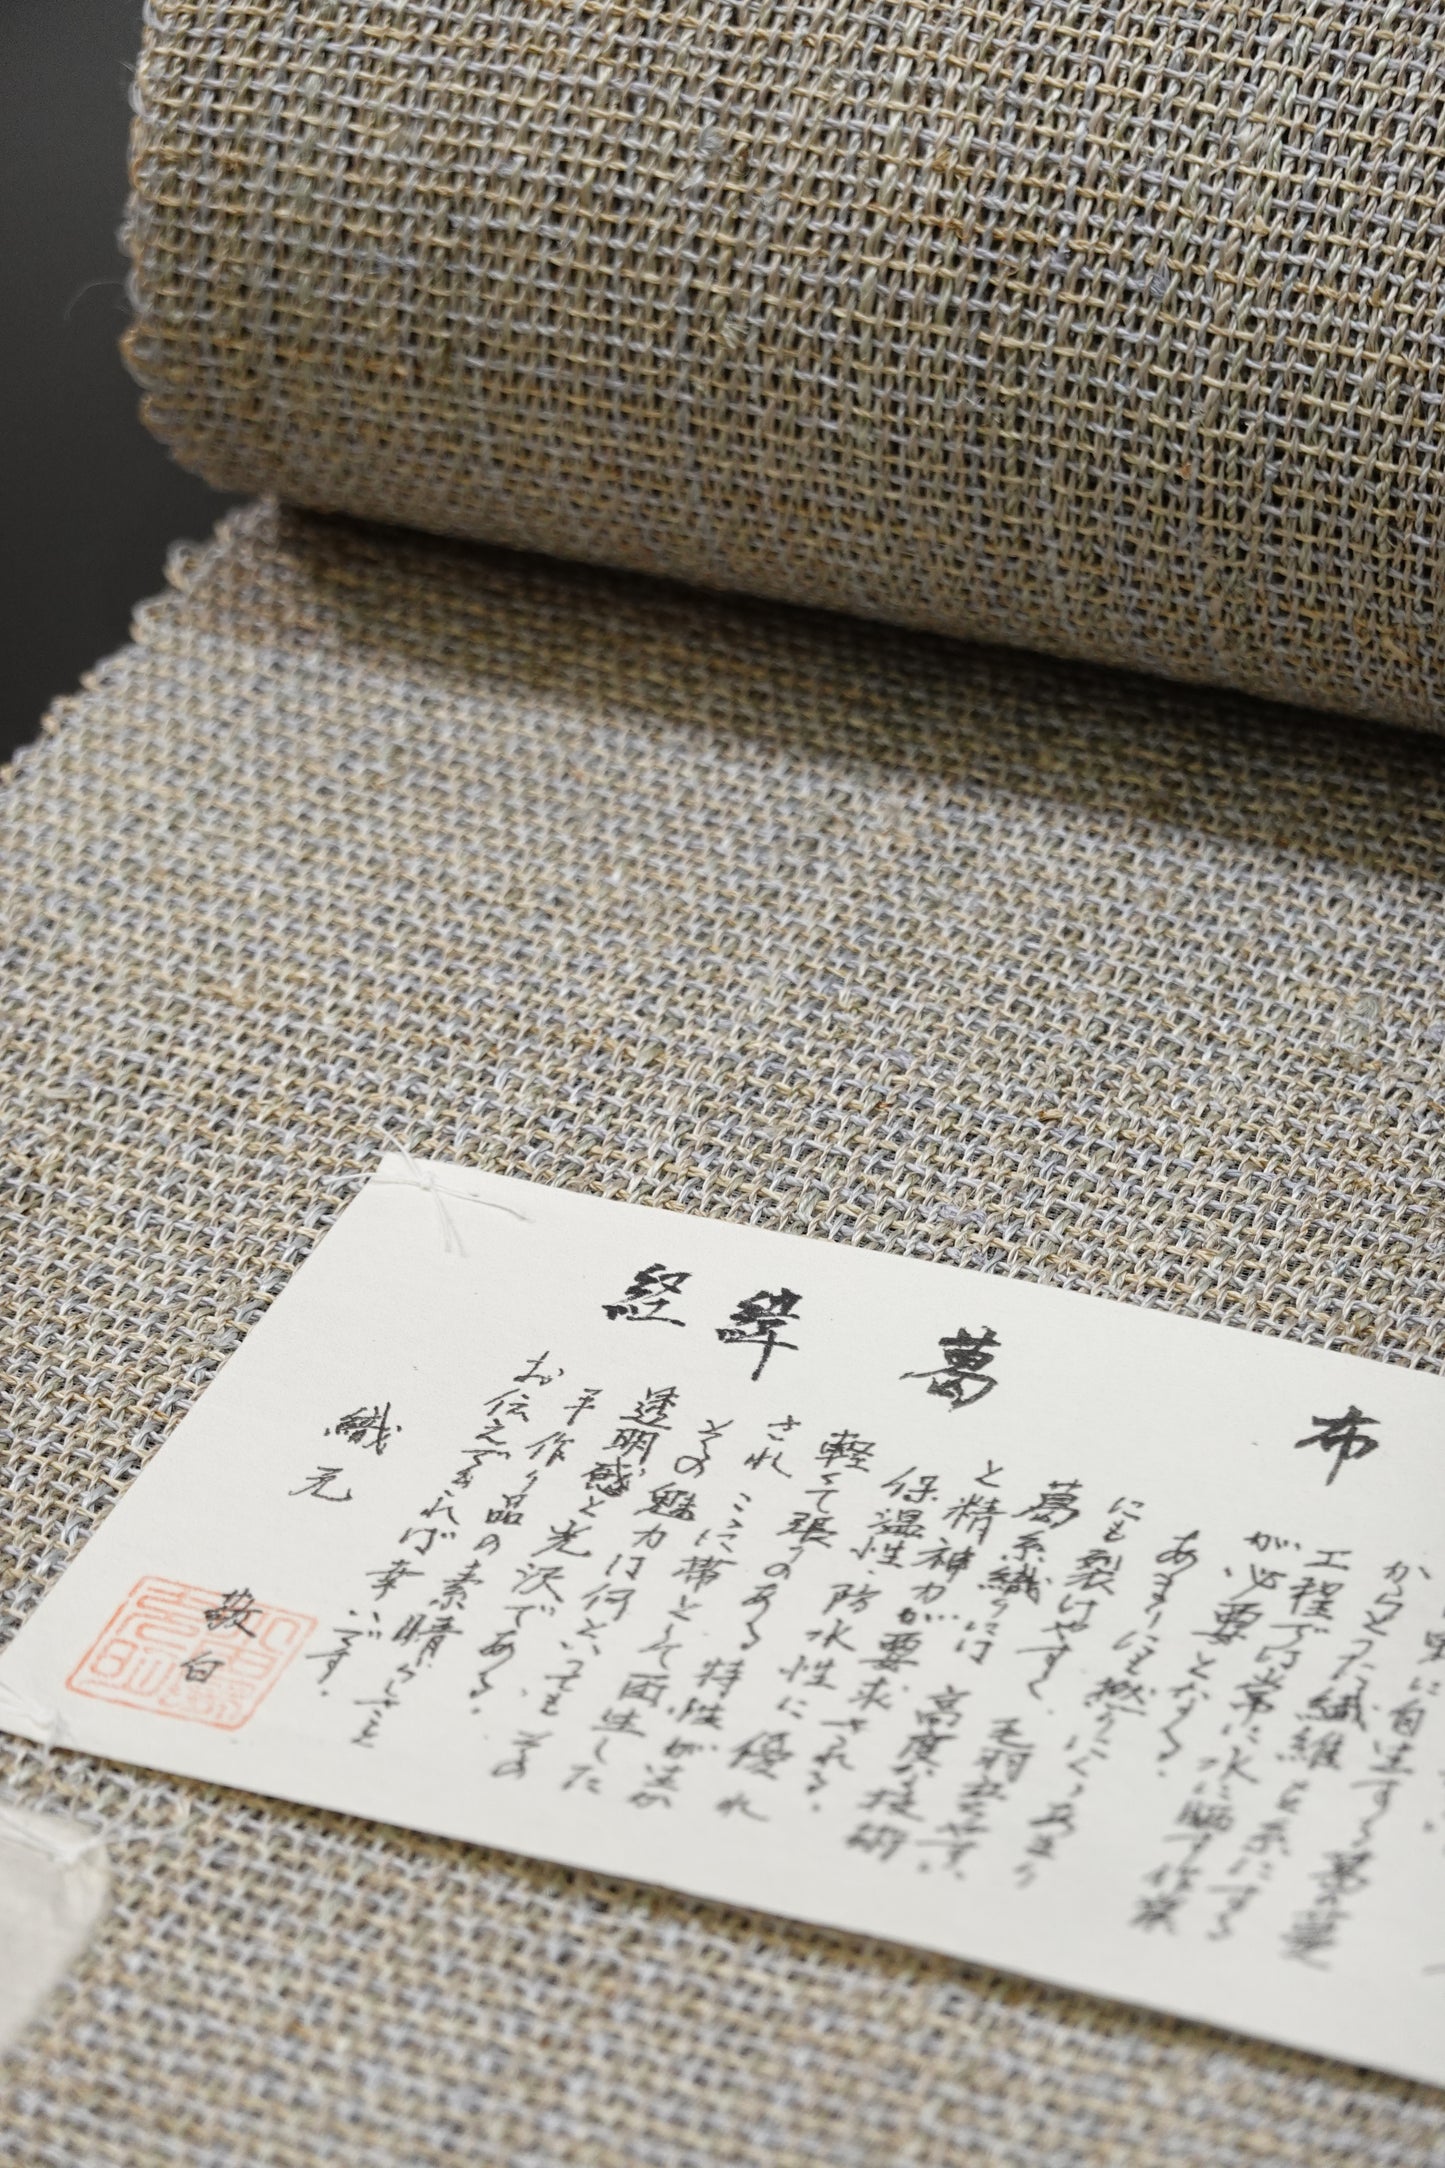 経緯 葛 布
野に自生する葛の蔓
からとった繊維を糸にする
工程では常に水に晒す作業
が必要となる。
あまりにも撚りにくく あまり
にも裂けやすく、毛羽立ちやすい、
葛糸織りには 高度な技術
と精神力が要求される。
保温性、防水性に優れ
軽くて張りのある特性が活か
され ここに帯として再生した
その魅力は何といっても その
透明感と光沢である。
手作り品の素晴らしさを
お伝えできれば幸いです。
織元 敬白